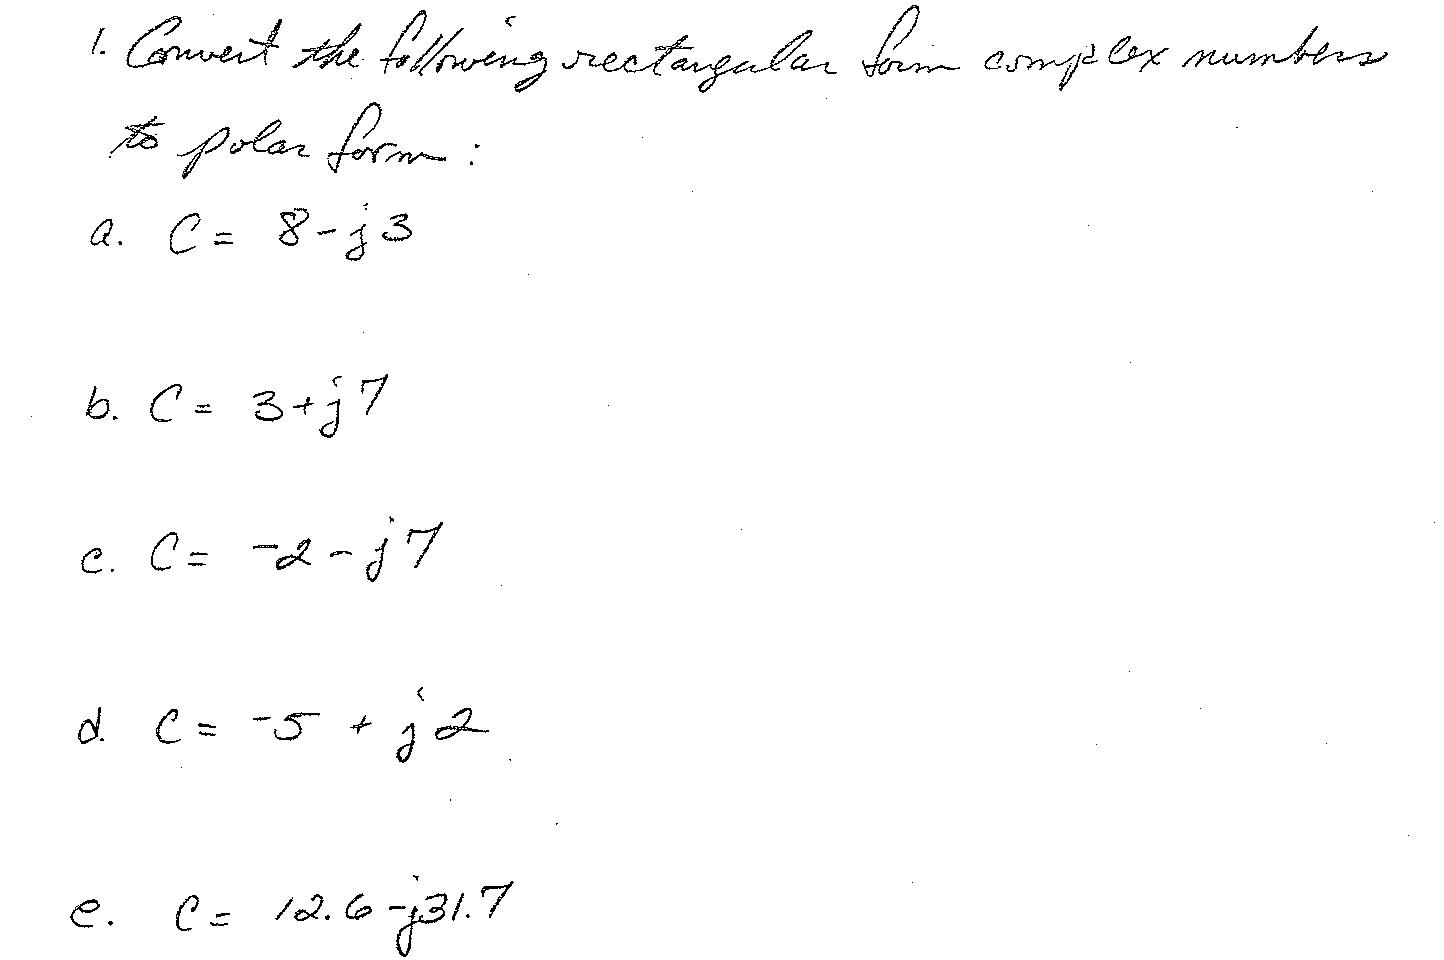 1. Convert the following rectangular form complex numbers
to polar form:
a. C = 8-j3
b. C = 3+j7
c. C = -2-j7
d. C = -5 + j2
e. C = 12.6-j31.7